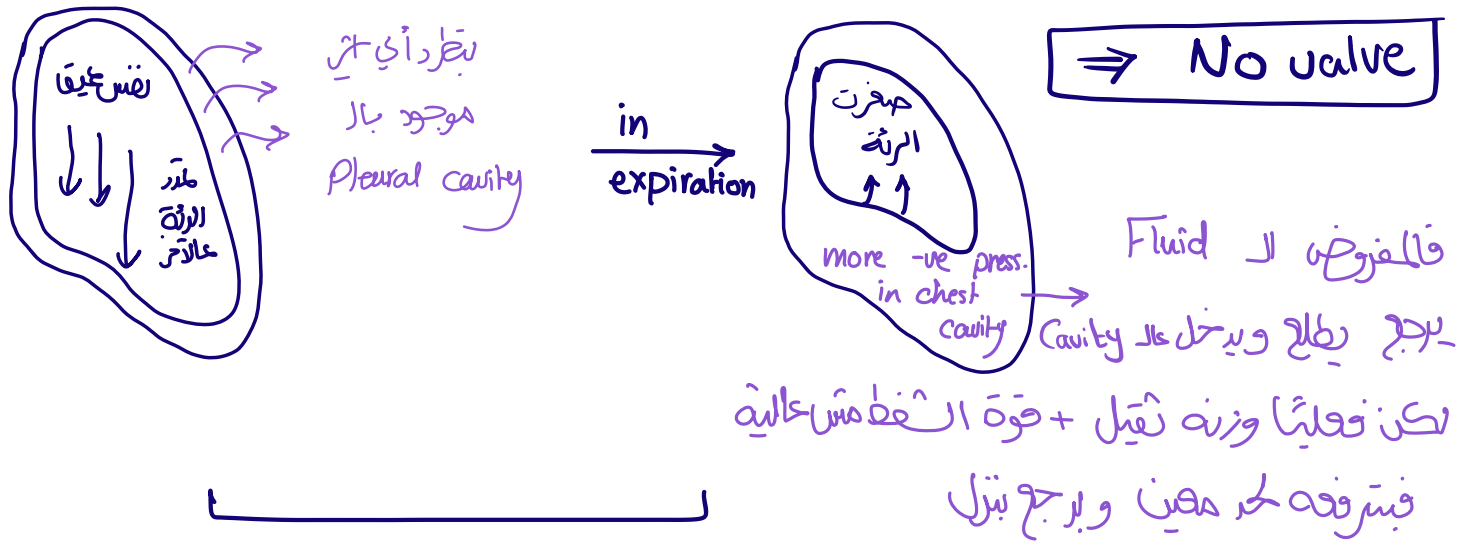 نفس عميق
تمدد
الرئة
عالآخر
بتطرد أي اشي
موجود بالـ
Pleural cavity
in
expiration
صغرت
الرئة
more -ve press.
in chest
cavity
⇒ No valve
فالمفروض الـ Fluid
يرجع يطلع ويدخل عالـ Cavity
لكن فعليًا وزنه ثقيل + قوة الشفط مش عالية
فبترفعه لحد معين وبرجع بنزل